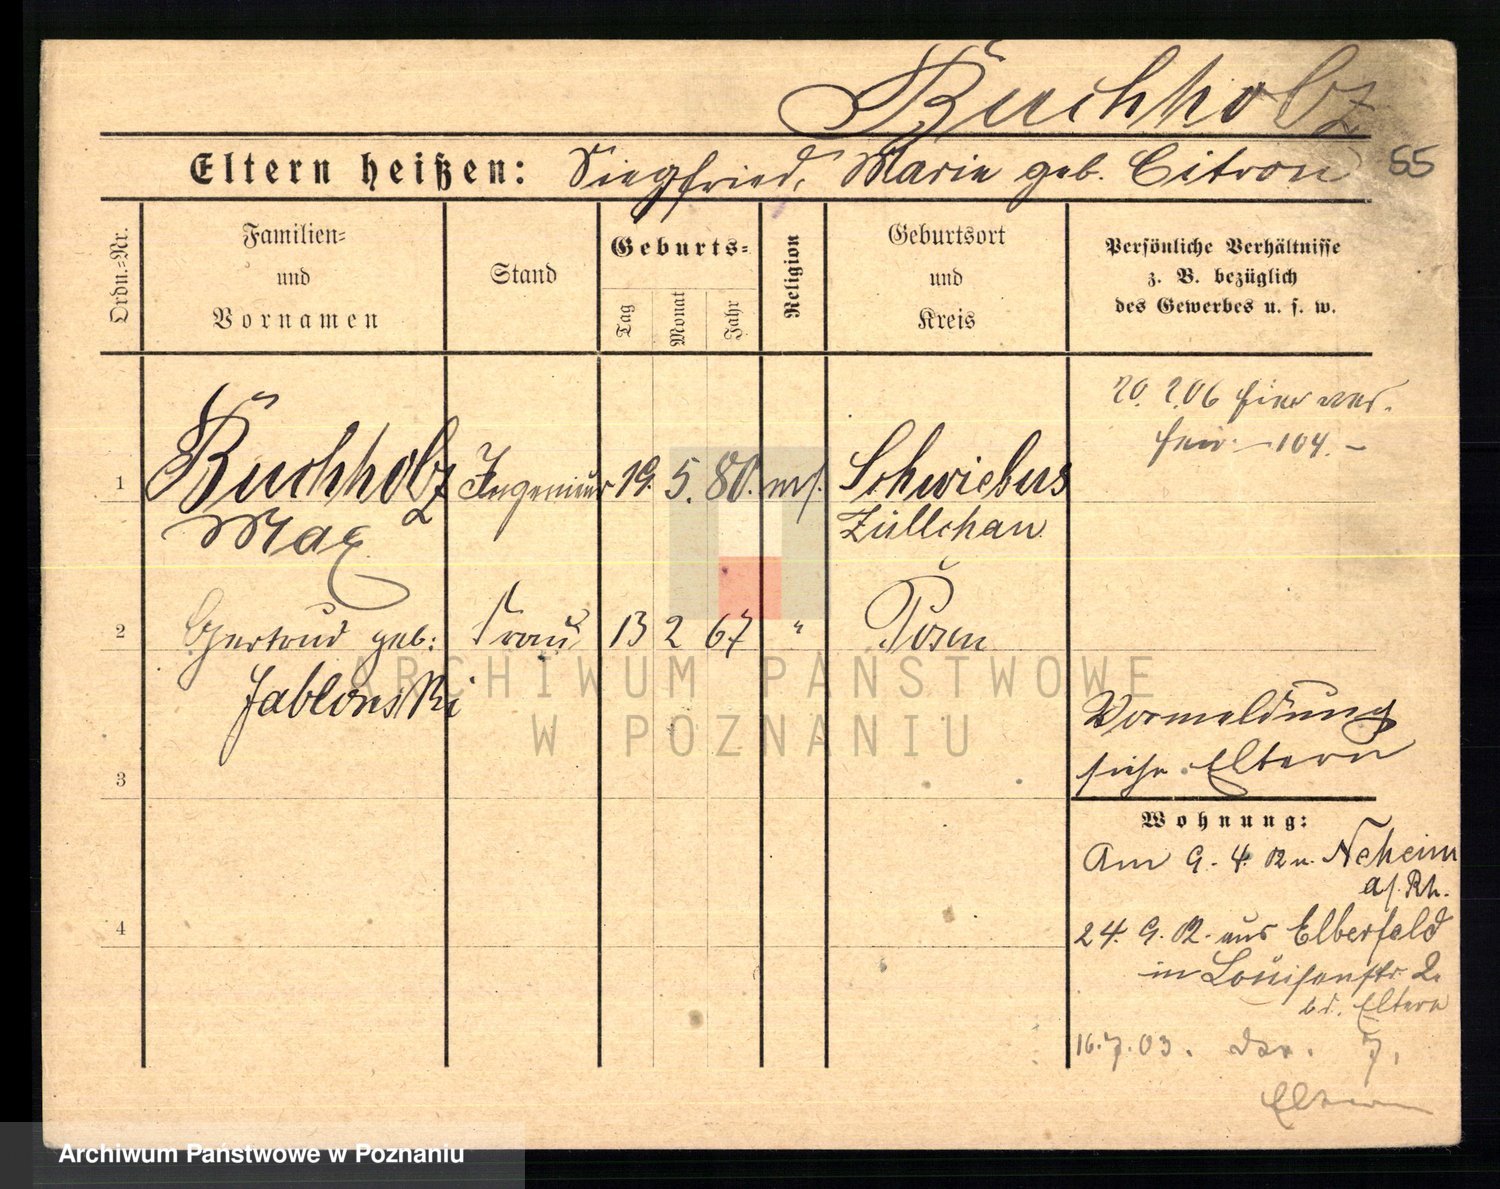 Buchholz
Eltern heißen: Siegfried, Marie geb. Citron 55
Ordn.=Nr.
Familien=
und
Vornamen
Stand
Geburts=
Tag
Monat
Jahr
Religion
Geburtsort
und
Kreis
Persönliche Verhältnisse
z. B. bezüglich
des Gewerbes u. s. w.
104. –
1 Buchholz Ingenieur 19. 5. 80. ms. Schwiebus
Max Züllchau
2 Gertrud geb: Frau 13 2 67 " Posen
Jablonski
Vormeldung
siehe Eltern
3
Wohnung:
Am 9. 4. 02 n. Neheim
a/. Rh.
4
24. 9. 02. aus Elberfeld
in Louisenstr. 2.
b d. Eltern
16. 7. 03. 7.
Eltern
ARCHIWUM PAŃSTWOWE
W POZNANIU
Archiwum Państwowe w Poznaniu